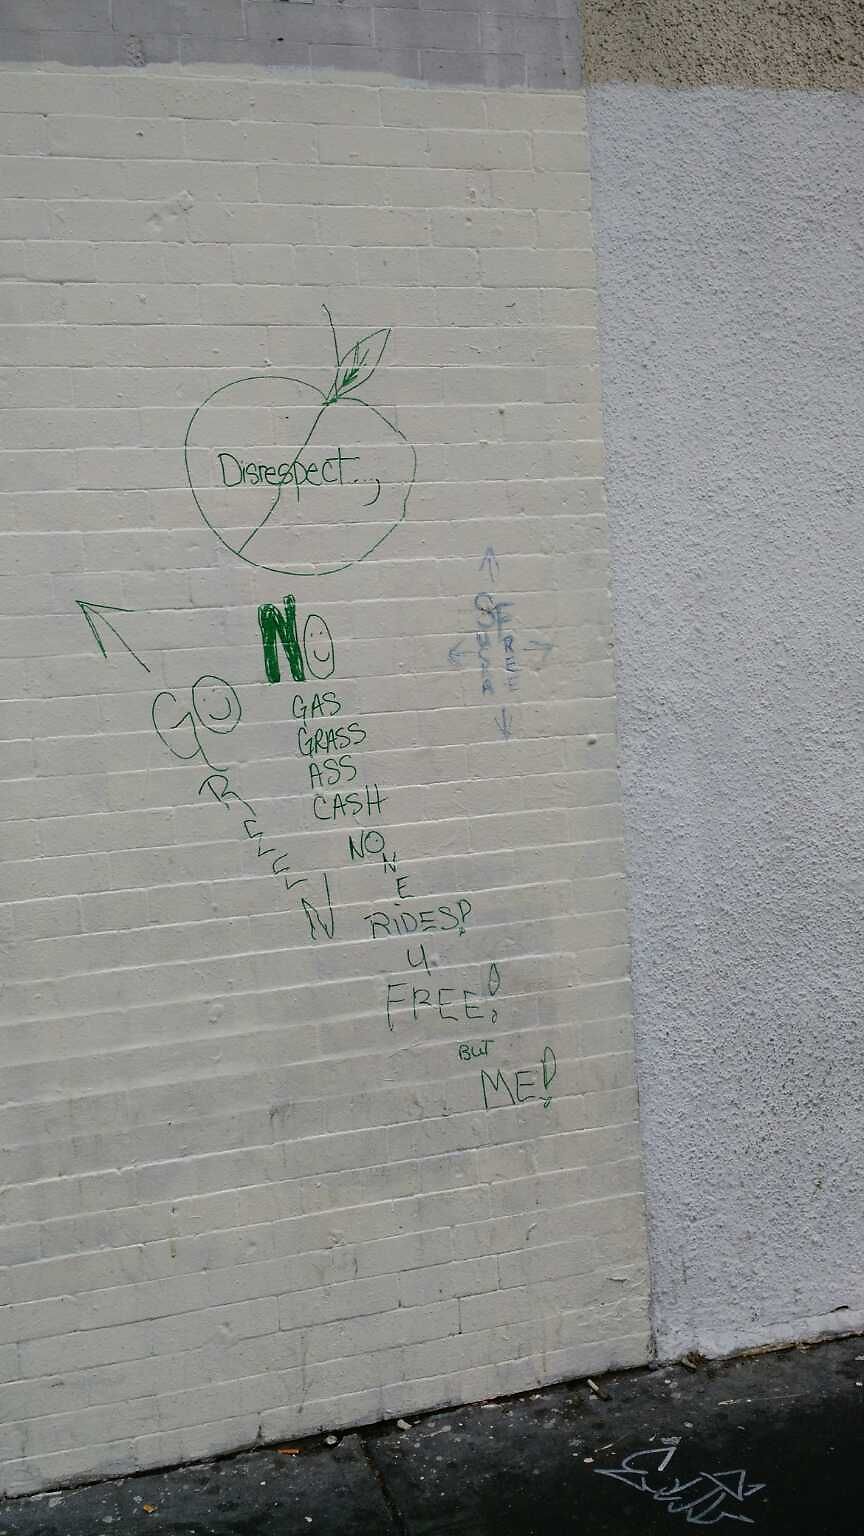 Disrespect...,
NO
GAS
GRASS
ASS
CASH
NONE
RIDES!
4
FREE!
BUT
ME!
GO
GREEN
SF
FREE
USA